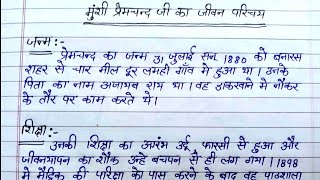 मुंशी प्रेमचन्द जी का जीवन परिचय
जन्म:-
प्रेमचन्द का जन्म 31 जुलाई सन् 1880 को बनारस
शहर से चार मील दूर लमही गाँव मे हुआ था। उनके
पिता का नाम अजायब राय था। वह डाकखाने मे नौकर
के तौर पर काम करते थे।
शिक्षा:-
उनकी शिक्षा का आरंभ उर्दू, फारसी से हुआ और
जीवनयापन का शौक उन्हे बचपन से ही लग गया। 1898
मे मैट्रिक की परिक्षा को पास करने के बाद वह पाठशाला